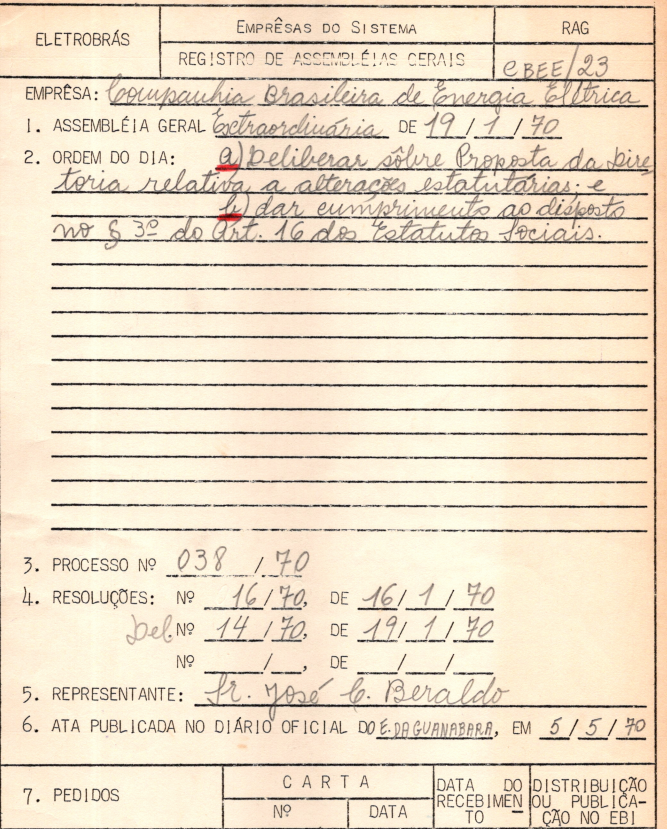 ELETROBRÁS
EMPRÊSAS DO SISTEMA
RAG
REGISTRO DE ASSEMBLÉIAS GERAIS
CBEE/23
EMPRÊSA: Companhia Brasileira de Energia Elétrica
1. ASSEMBLÉIA GERAL Extraordinária DE 19/1/70
2. ORDEM DO DIA: a) Deliberar sôbre Proposta da Dire
toria relativa a alterações estatutárias; e
b) dar cumprimento ao disposto
no § 3º do Art. 16 dos Estatutos Sociais.
3. PROCESSO Nº 038/70
4. RESOLUÇÕES: Nº 16/70, DE 16/1/70
Del Nº 14/70, DE 19/1/70
Nº / , DE / /
5. REPRESENTANTE: Sr. José C. Beraldo
6. ATA PUBLICADA NO DIÁRIO OFICIAL DO E. DA GUANABARA, EM 5/5/70
7. PEDIDOS
CARTA
Nº
DATA
DATA DO
RECEBIMEN
TO
DISTRIBUIÇÃO
OU PUBLICA-
ÇÃO NO EBI